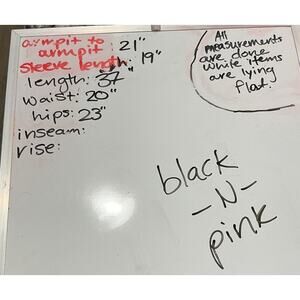 armpit to
armpit: 21"
sleeve length: 19"
length: 37"
waist: 20"
hips: 23"
inseam:
rise:
All
measurements
are done
while items
are lying
flat.
black
-N-
pink